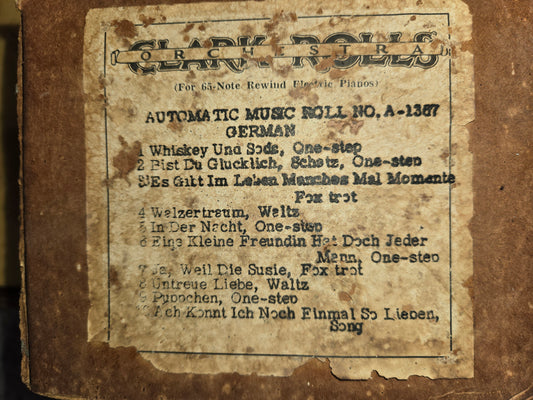 CLARK ROLLS
ORCHESTRA
(For 65-Note Rewind Electric Pianos)
AUTOMATIC MUSIC ROLL NO. A-1367
GERMAN
1 Whiskey Und Soda, One-step
2 Bist Du Glucklich, Schatz, One-step
3 Es Gitt Im Leben Manches Mal Momente
Fox trot
4 Walzertraum, Waltz
5 In Der Nacht, One-step
6 Eine Kleine Freundin Hat Doch Jeder
Mann, One-step
7 Ja, Weil Die Susie, Fox trot
8 Untreue Liebe, Waltz
9 Puppchen, One-step
10 Ach Konnt Ich Noch Einmal So Lieben,
Song